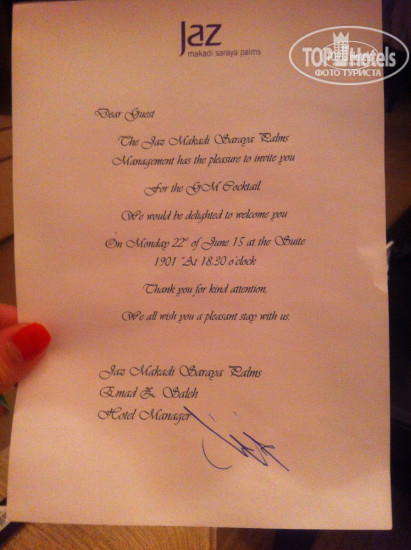 Jaz
makadi saraya palms
TOP Hotels
ФОТО ТУРИСТА
Dear Guest
The Jaz Makadi Saraya Palms
Management has the pleasure to invite you
For the GM Cocktail.
We would be delighted to welcome you
On Monday 22nd of June 15 at the Suite
1901 "At 18.30 o'clock
Thank you for kind attention,
We all wish you a pleasant stay with us.
Jaz Makadi Saraya Palms
Emad Z. Saleh
Hotel Manager